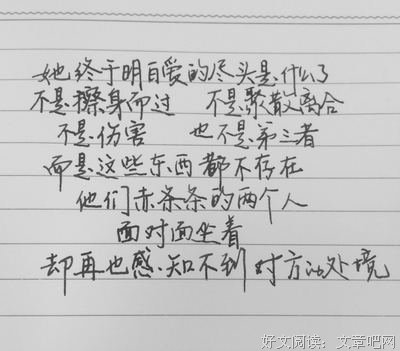 她终于明白爱的尽头是什么了
不是擦身而过 不是聚散离合
不是伤害 也不是第三者
而是这些东西都不存在
他们赤条条的两个人
面对面坐着
却再也感知不到对方的处境
好文阅读：文章吧网